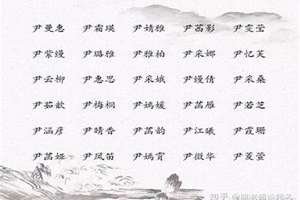 尹曼惠 尹霜瑛 尹婧雅 尹菡影 尹雯莹
尹紫缦 尹璐雅 尹雅柏 尹采娜 尹忆芙
尹云柳 尹惠思 尹采娥 尹缦倩 尹采桑
尹茹歆 尹梅桐 尹嫣媛 尹菡雁 尹若芝
尹涵彦 尹晴香 尹菡韵 尹江曦 尹霞珊
尹菡娅 尹凤苗 尹嫣霄 尹微华 尹菱萱